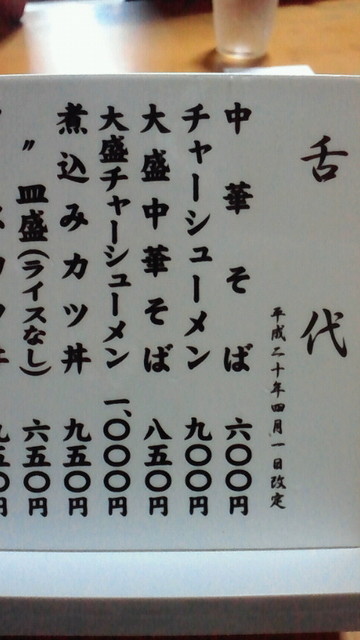 舌代
平成二十年四月一日改定
中華そば 六〇〇円
チャーシューメン 九〇〇円
大盛中華そば 八五〇円
大盛チャーシューメン 一、〇〇〇円
煮込みカツ丼 九五〇円
〃 皿盛(ライスなし) 六五〇円